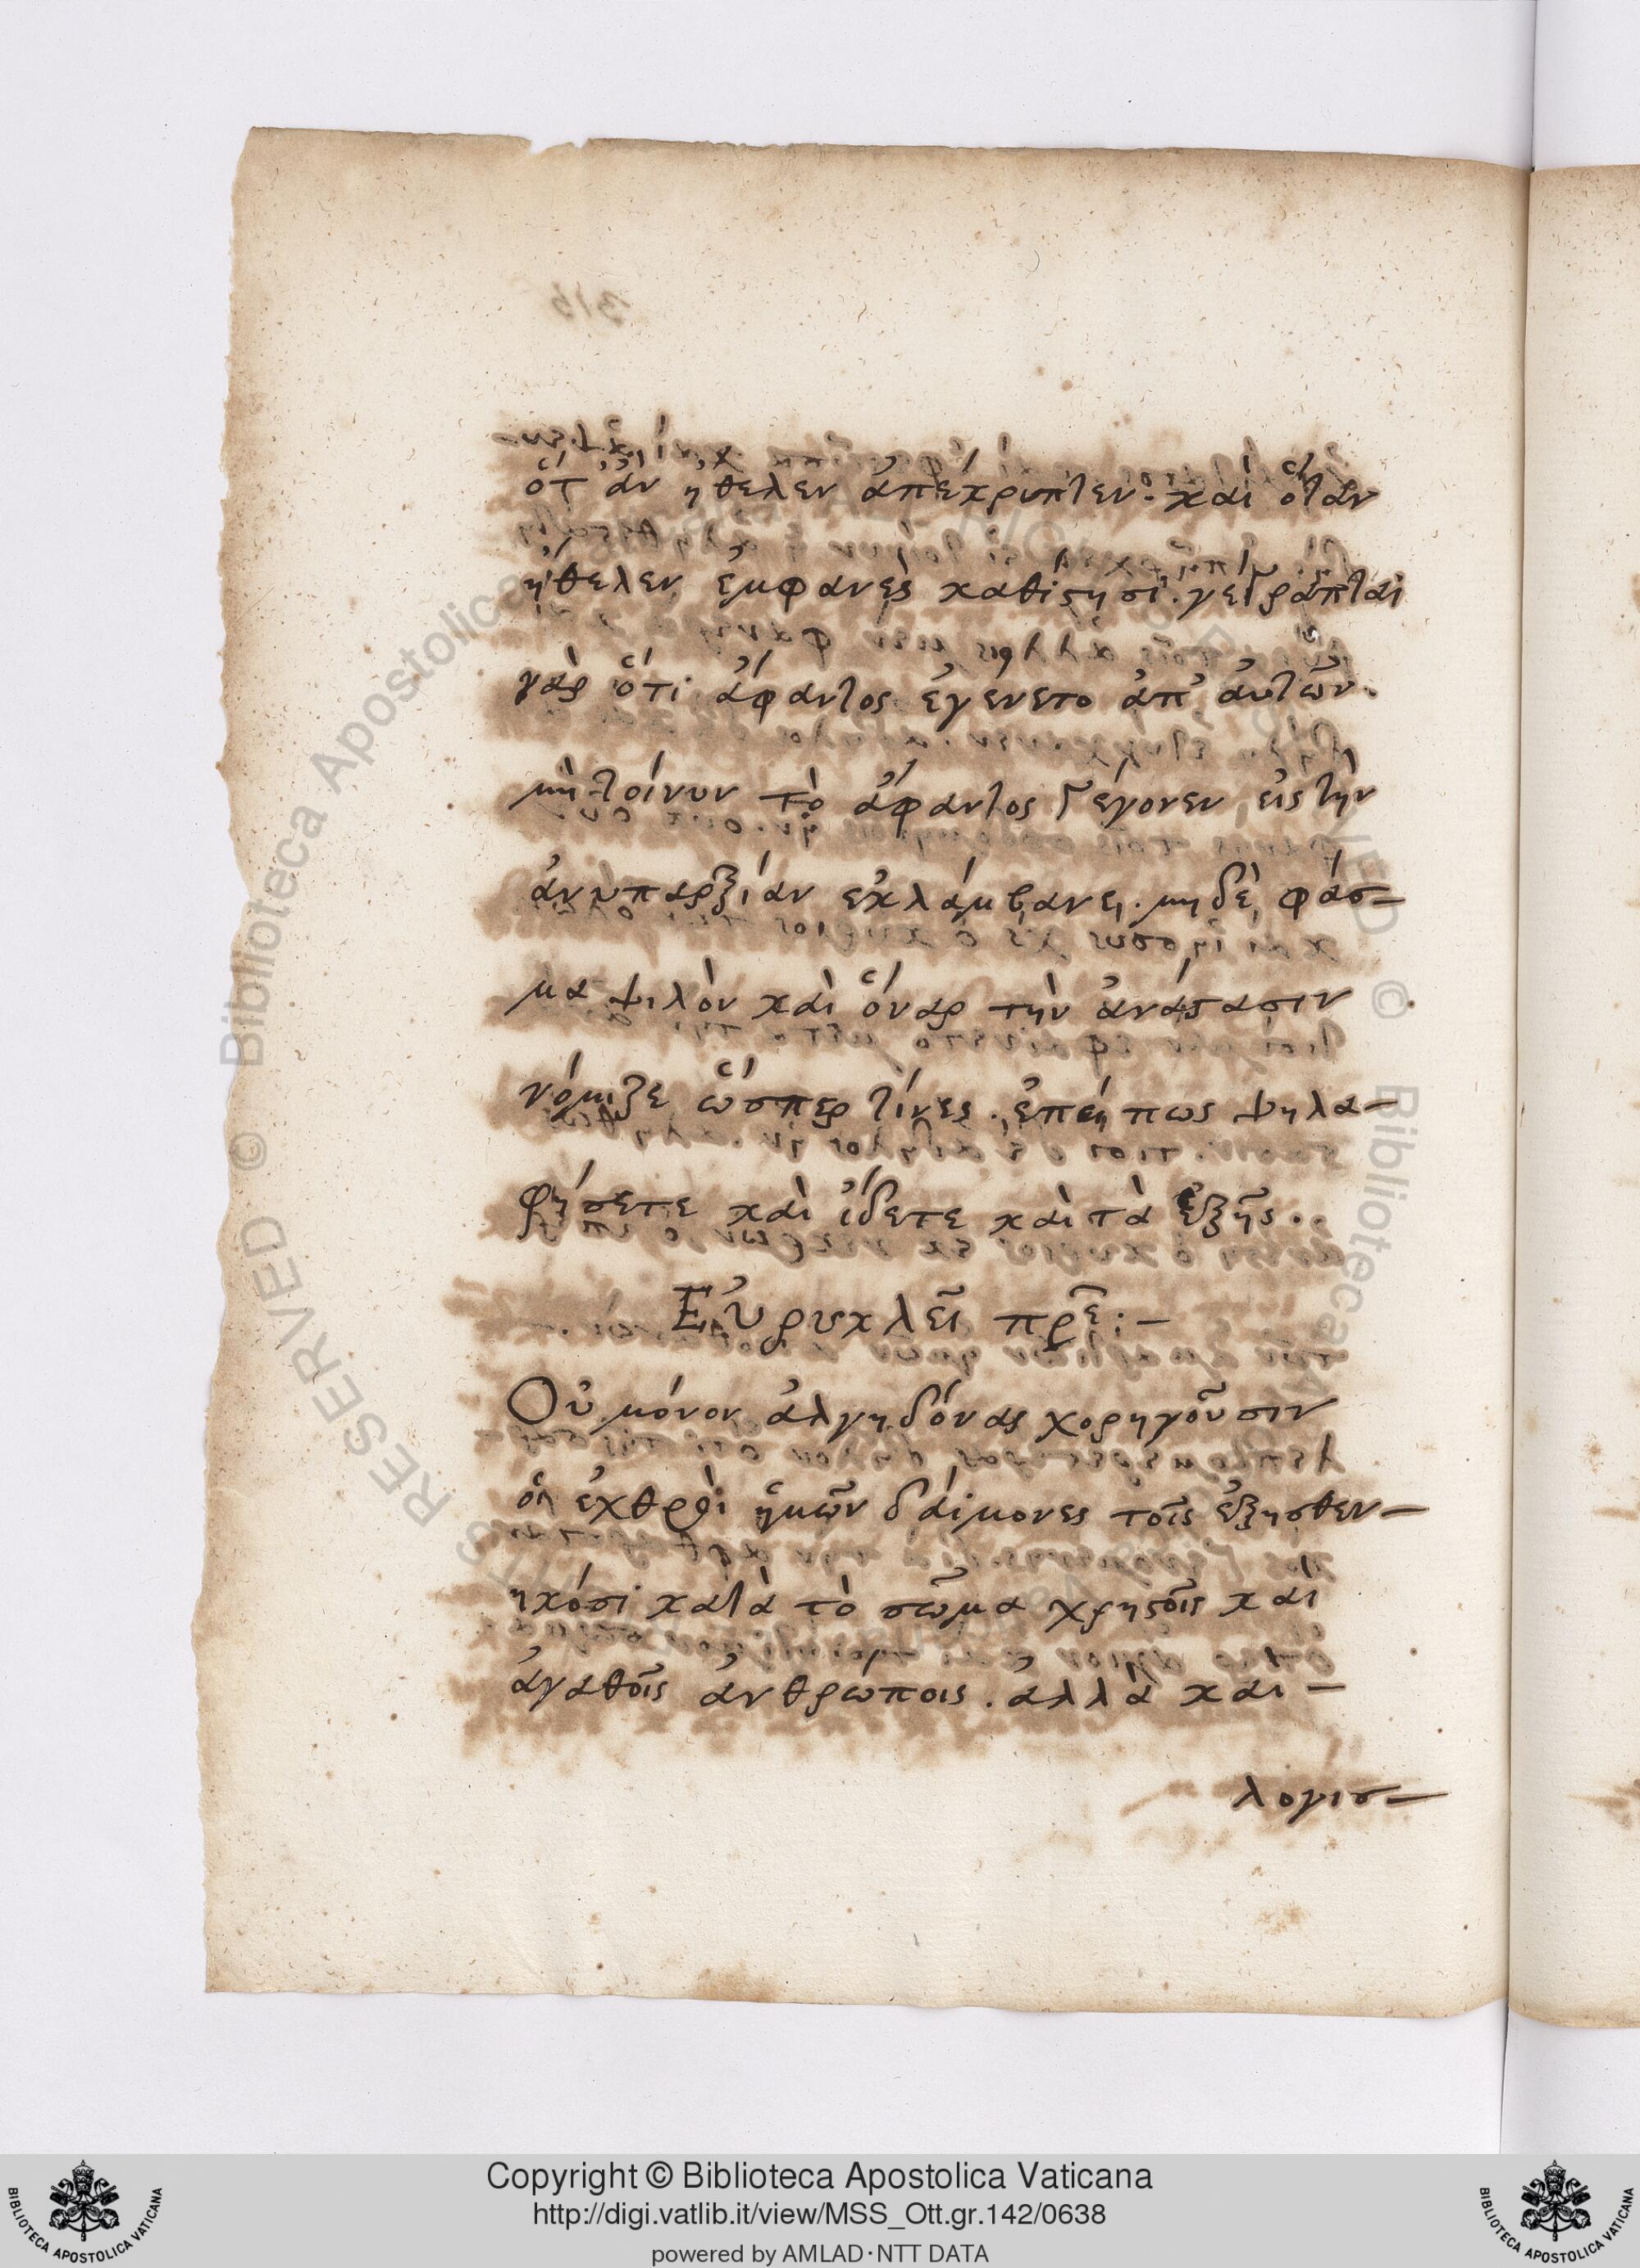 ὅτ ἂν ἤθελεν ἀπέκρυπτεν. καὶ ὅταν
ἤθελεν ἐμφανὲς καθίστησι. γέγραπται
γὰρ ὅτι ἄφαντος ἐγένετο ἀπ' ἀυτῶν.
μὴ τοίνυν τὸ ἄφαντος γέγονεν, εἰς τὴν
ἀνυπαρξίαν ἐκλάμβανε. μηδὲ φάσ-
μα ψιλὸν καὶ ὄναρ τὴν ἀνάστασιν
νόμιζε ὥσπερ τινες. ἐπεὶ πως ψηλα-
φήσετε καὶ ἴδετε καὶ τὰ ἑξῆς..
Εὐρυκλεῖ πρε:-
Οὐ μόνον ἀλγηδόνας χορηγοῦσιν
οἱ ἐχθροὶ ἡμῶν δαίμονες τοῖς ἐξησθεν-
ηκόσι κατὰ τὸ σῶμα χρηστοῖς καὶ
ἀγαθοῖς ἀνθρώποις. ἀλλὰ καὶ -
λογισ-
Copyright © Biblioteca Apostolica Vaticana
http://digi.vatlib.it/view/MSS_Ott.gr.142/0638
powered by AMLAD·NTT DATA
BIBLIOTECA APOSTOLICA VATICANA
BIBLIOTECA APOSTOLICA VATICANA